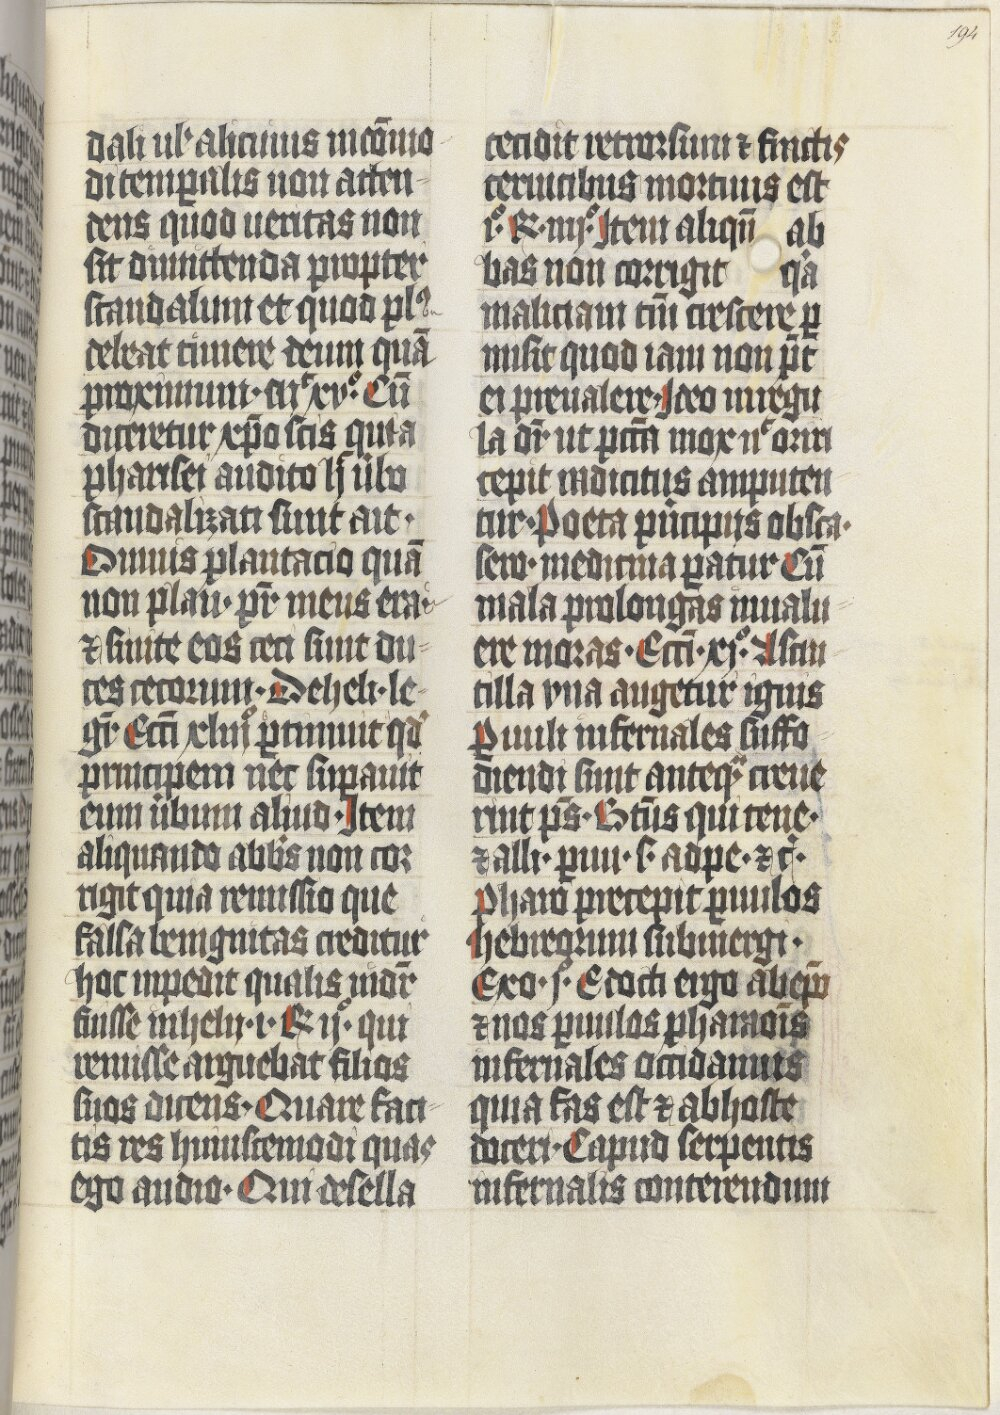 194
dali ul' alicuius incōmo
di temꝑalis non atten-
dens quod ueritas non
sit dimittenda propter
scandalum et quod pl
debeat timere deum quā
proximum· xv°. Cū
diceretur xp̄o scis quia
pharisei audito ūbo
scandalizati sunt ait·
Omnis plantacio quā
non plau· pr̄ meus era-
⁊ sinite eos ceci sunt du-
ces cecorum· De heli· le-
gr̄ Ecc̄i xlııȷ° ꝑtimuit qd̄
principem nec supauit
eum ūbum aliud· Item
aliquando abb̄s non cor
rigit quia remissio que
falsa benignitas creditur
hoc inpedit qualis uidr̄
fuisse in hely· ı· R ıȷ°· qui
remisse arguebat filios
suos dicens· Quare faci-
tis res huiuscemodi quas
ego audio· Qui de sella
cecidit retrorsum ⁊ fractis
ceruicibus mortuus est
ı° R· ıııȷ°· Item aliqn̄ ab
bas non corrigit q̇a
maliciam tm̄ crescere ꝑ
misit quod iam non p̄t
ei preualere· Ideo in regu
la dr̄ ut pcc̄a mox ut oriri
ceperint radicitus amputen
tur· Poeta principiis obsta·
sero· medicina ꝑatur Cū
mala prolongas inualu-
ere moras· Ecc̄i· xȷ°· A scin
tilla vna augetur ignis
Paruuli infernales suffo
diendi sunt anteqᵃ creue
rint p̄s· Bt̄us qui tene·
⁊ alli· ꝑuu· s· ad pe· ⁊ c̄·
Pharao precepit ꝑuulos
hebreorum submergi·
Exo· ȷ°· Edocti ergo ab eo
⁊ nos ꝑuulos pharaoīs
infernales occidamus
quia fas est ⁊ ab hoste
doceri· Capud serpentis
infernalis conterendum